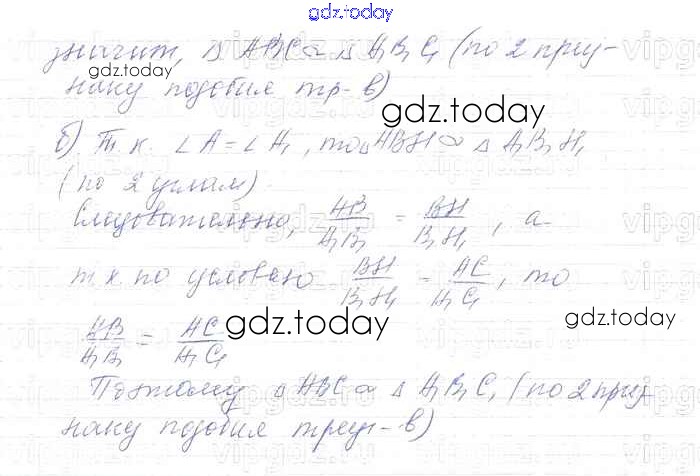 gdz.today
значит, △ ABC ∾ △ A₁B₁C₁ (по 2 приз-
gdz.today
наку подобия тр-в)
gdz.today
б) Т.к. ∠A = ∠A₁, то △ ABH ∾ △ A₁B₁H₁
(по 2 углам).
Следовательно, AB/A₁B₁ = BH/B₁H₁, а
т.к по условию BH/B₁H₁ = AC/A₁C₁, то
AB/A₁B₁ = AC/A₁C₁
gdz.today
gdz.today
Поэтому △ ABC ∾ △ A₁B₁C₁ (по 2 приз-
наку подобия треуг-в)
gdz.today